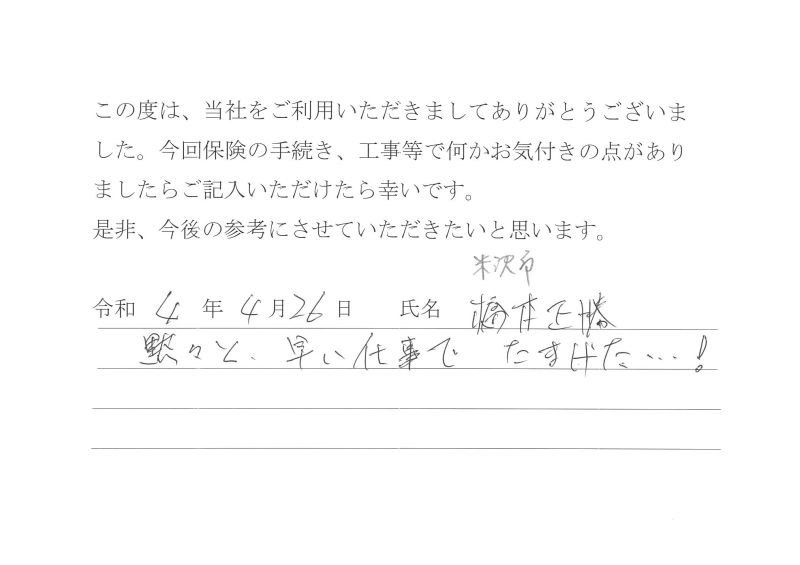 この度は、当社をご利用いただきましてありがとうございま
した。今回保険の手続き、工事等で何かお気付きの点があり
ましたらご記入いただけたら幸いです。
是非、今後の参考にさせていただきたいと思います。
米沢市
令和 4 年 4 月 26 日 氏名 橋本正勝
黙々と、早い仕事で たすけた…!